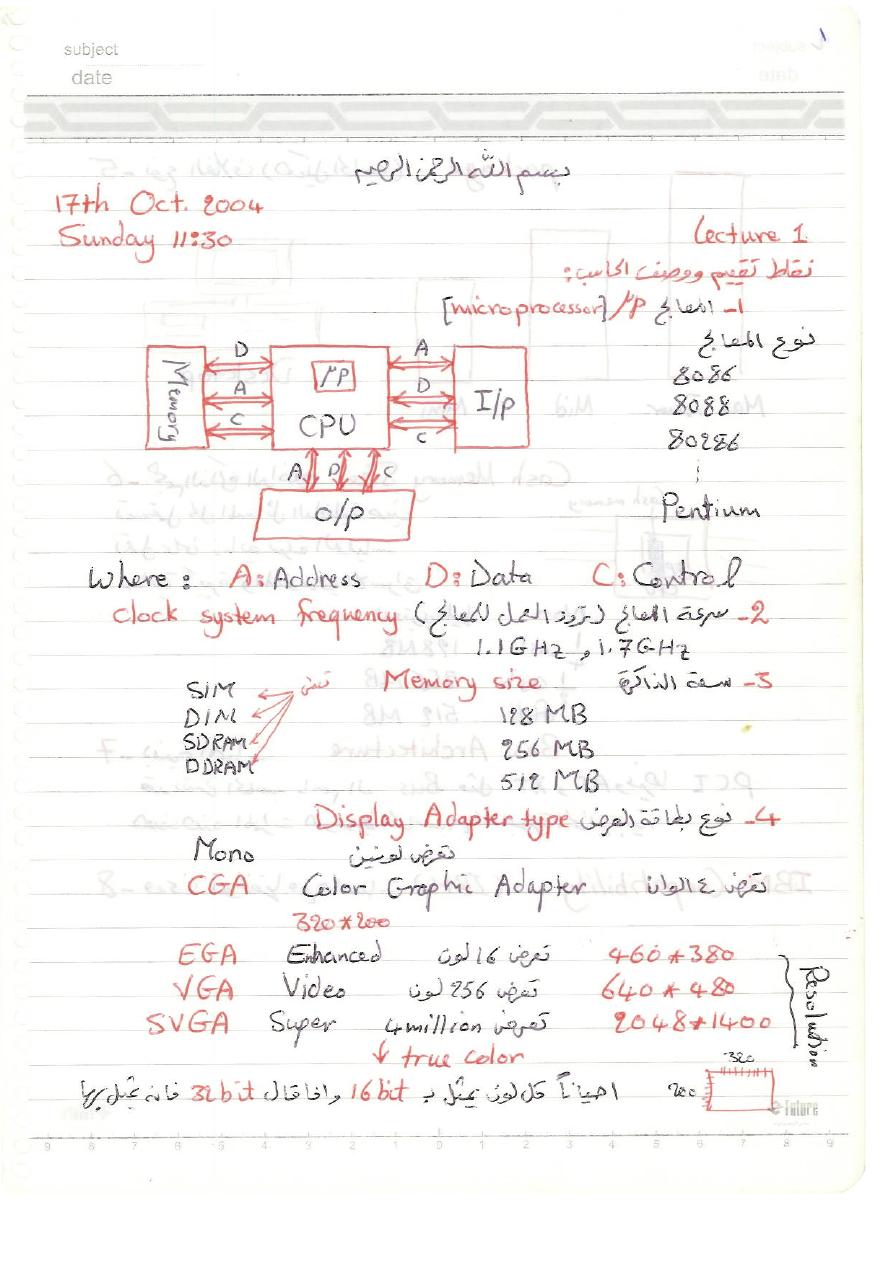 subject
date
١
بسم الله الرحمن الرحيم
17th Oct. 2004
Sunday 11:30
Lecture 1
نقاط تقييم ووصف الحاسب:
1- المعالج μP [microprocessor]
نوع المعالج
8086
8088
80286
Pentium
Memory
D
A
C
μP
CPU
A
D
C
I/p
A D C
O/p
Where: A: Address D: Data C: Control
2- سرعة المعالج (تردد العمل للمعالج) clock system frequency
1.7GHz و 1.1GHz
3- سعة الذاكرة Memory size
128 MB
256 MB
512 MB
SIM
DIM
SDRAM
DDRAM
4- نوع بطاقة العرض Display Adapter type
Mono تعرض لونين
CGA Color Graphic Adapter تعرض ٤ الوان
320*200
EGA Enhanced تعرض 16 لون 460*380
VGA Video تعرض 256 لون 640*480
SVGA Super تعرض 4million 2048*1400
Resolution
true color
320
200
احياناً كل لون يمثل بـ 16bit واذا قال 32bit فانه يمثل بها
e-Future
9 8 7 6 5 4 3 2 1 0 1 2 3 4 5 6 7 8 9